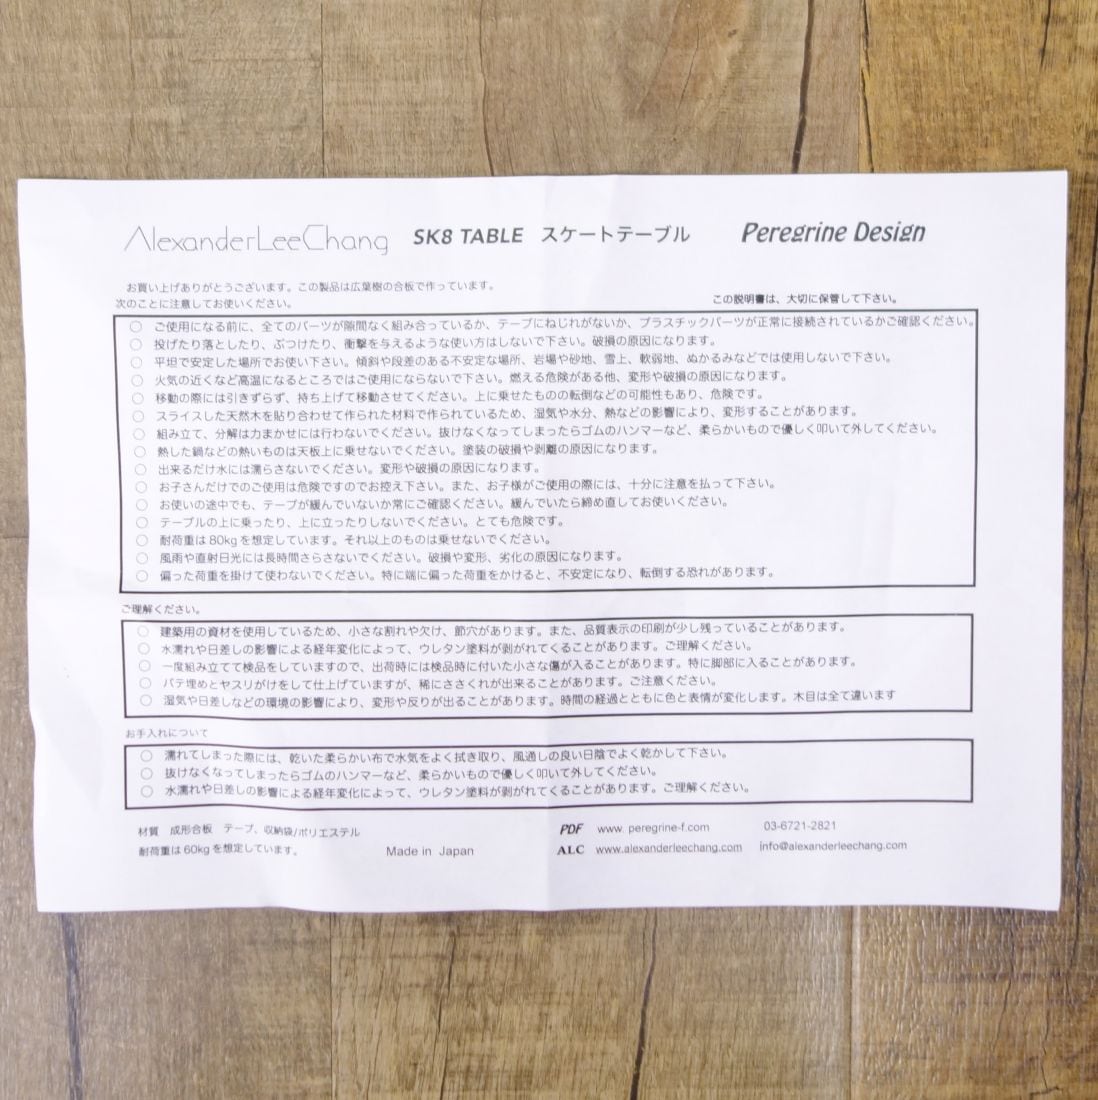 AlexanderLeeChang SK8 TABLE スケートテーブル Peregrine Design
お買い上げありがとうございます。この製品は広葉樹の合板で作っています。
次のことに注意してお使いください。 この説明書は、大切に保管して下さい。
○ ご使用になる前に、全てのパーツが隙間なく組み合っているか、テープにねじれがないか、プラスチックパーツが正常に接続されているかご確認ください。
○ 投げたり落としたり、ぶつけたり、衝撃を与えるような使い方はしない下さい。破損の原因になります。
○ 平坦で安定した場所でお使い下さい。傾斜や段差のある不安定な場所、岩場や砂地、雪上、軟弱地、ぬかるみなどでは使用しない下さい。
○ 火気の近くなど高温になるところではご使用にならない下さい。燃える危険がある他、変形や破損の原因になります。
○ 移動の際には引きずらず、持ち上げて移動させてください。上に乗せたものの転倒などの可能性もあり、危険です。
○ スライスした天然木を貼り合わせて作られた材料で作られているため、湿気や水分、熱などの影響により、変形することがあります。
○ 組み立て、分解は力まかせには行わないでください。抜けなくなってしまったらゴムのハンマーなど、柔らかいもので優しく叩いて外してください。
○ 熱した鍋などの熱いものは天板上に乗せないでください。塗装の破損や剥離の原因になります。
○ 出来るだけ水には濡らさないでください。変形や破損の原因になります。
○ お子さんだけでのご使用は危険ですのでお控え下さい。また、お子様がご使用の際には、十分に注意を払って下さい。
○ お使いの途中でも、テープが緩んでいないか常にご確認ください。緩んでいたら締め直してお使いください。
○ テーブルの上に乗ったり、上に立ったりしないでください。とても危険です。
○ 耐荷重は80kgを想定しています。それ以上のものは乗せないでください。
○ 風雨や直射日光には長時間さらさないでください。破損や変形、劣化の原因になります。
○ 偏った荷重を掛けて使わないでください。特に端に偏った荷重をかけると、不安定になり、転倒する恐れがあります。
ご理解ください。
○ 建築用の資材を使用しているため、小さな割れや欠け、節穴があります。また、品質表示の印刷が少し残っていることがあります。
○ 水濡れや日差しの影響による経年変化によって、ウレタン塗料が剥がれてくることがあります。ご理解ください。
○ 一度組み立てて検品をしていますので、出荷時には検品時に付いた小さな傷が入ることがあります。特に脚部に入ることがあります。
○ パテ埋めとヤスリがけをして仕上げていますが、稀にささくれが出来ることがあります。ご注意ください。
○ 湿気や日差しなどの環境の影響により、変形や反りが出ることがあります。時間の経過とともに色と表情が変化します。木目は全て違います
お手入れについて
○ 濡れてしまった際には、乾いた柔らかい布で水気をよく拭き取り、風通しの良い日陰でよく乾かして下さい。
○ 抜けなくなってしまったらゴムのハンマーなど、柔らかいもので優しく叩いて外してください。
○ 水濡れや日差しの影響による経年変化によって、ウレタン塗料が剥がれてくることがあります。ご理解ください。
材質 成形合板 テープ、収納袋/ポリエステル PDF www. peregrine-f.com 03-6721-2821
耐荷重は60kgを想定しています。 Made in Japan ALC www.alexanderleechang.com info@alexanderleechang.com